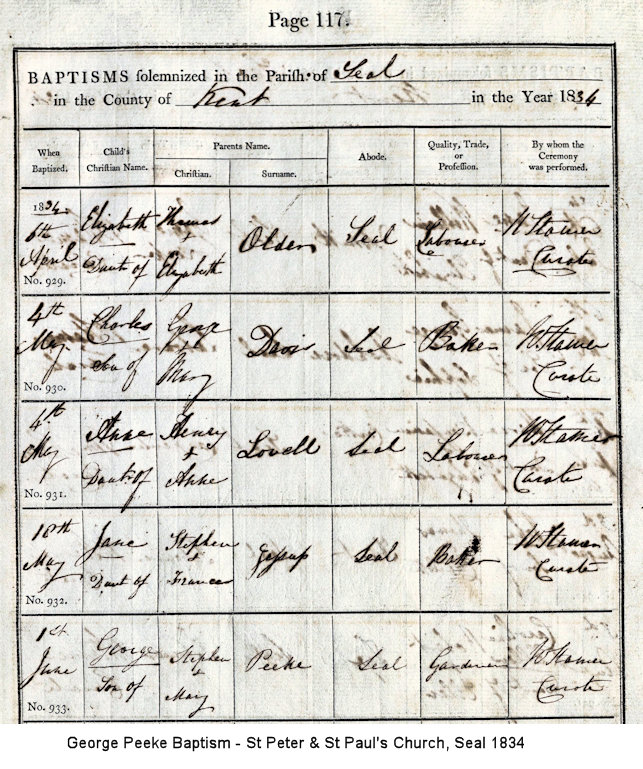 Page 117.
BAPTISMS solemnized in the Parish of Seal
in the County of Kent in the Year 1834
When Baptized. Child's Christian Name. Parents Name. Christian. Surname. Abode. Quality, Trade, or Profession. By whom the Ceremony was performed.
1834. 6th April No. 929. Elizabeth Daut of Thomas + Elizabeth Seal Labourer W Stamer Curate
4th May No. 930. Charles Son of George + Mary Davis Seal Baker W Stamer Curate
4th May No. 931. Anne Daut of Henry + Anne Lovell Seal Labourer W Stamer Curate
18th May No. 932. Jane Daut of Stephen + Frances Jessup Seal Baker W Stamer Curate
1st June No. 933. George Son of Stephen + Mary Peeke Seal Gardener W Stamer Curate
George Peeke Baptism - St Peter & St Paul's Church, Seal 1834